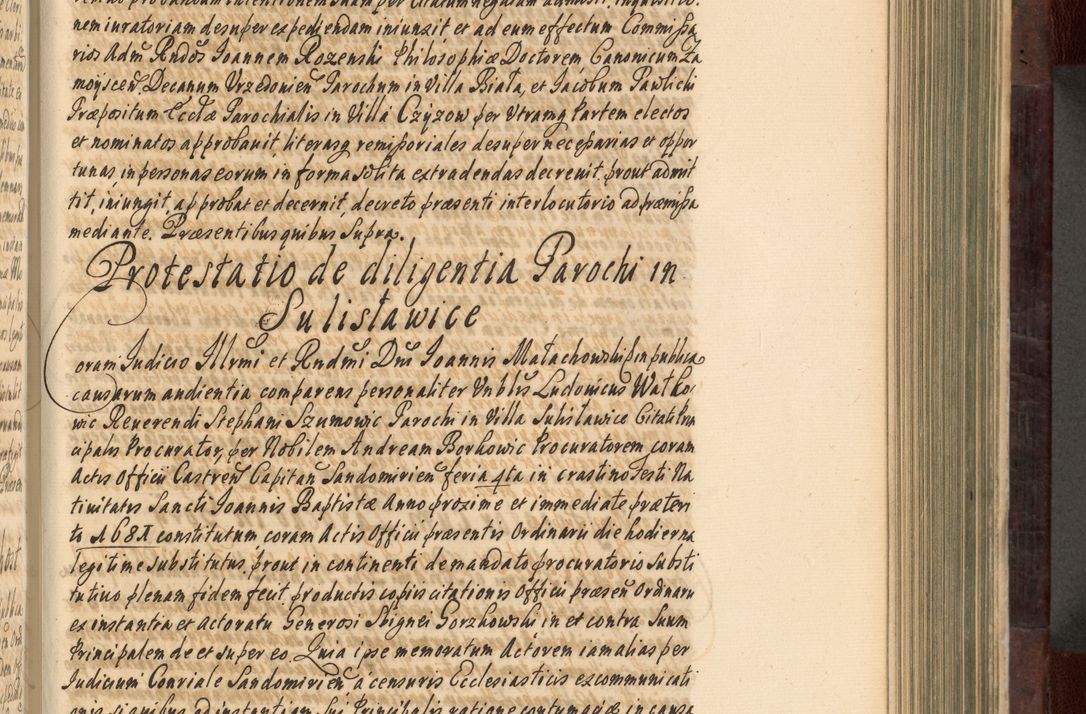 nem iuratoriam desuper expediendam iniunxit et ad eum effectum Commissa
rios Adm Rndos Joannem Rozenski Philosophiæ Doctorem Canonicum Za
moyscen Decanum Vrzedonien Parochum in Villa Biała, et Jacobum Pawlicki
Præpositum Ecclæ Parochialis in Villa Czyzow per Vtramq Partem electos
et nominatos approbauit, literasq remissoriales desuper necessarias et oppor
tunas, in personas eorum in forma solita extradendas decreuit, prout admit
tit, iniungit, approbat et decernit, decreto præsenti interlocutorio ad præmissa
mediante. Præsentibus quibus Supra.
Protestatio de diligentia Parochi in
Sulisławice
Coram Judicio Illrmi et Rndmi Dni Joannis Małachowski in publica
causarum audientia comparens personaliter Vnblis Ludouicus Watko
wic Reuerendi Stephani Szumowic Parochi in Villa Sulisławice Citati Prin
cipalis Procurator, per Nobilem Andream Borkowic Procuratorem coram
Actis Officii Castren Capitan Sandomirien feria 4ta in crastino Festi Na
tiuitatis Sancti Joannis Baptistæ Anno proxime et immediate præteri
to 1681 constitutum coram Actis Officii præsentis Ordinarii die hodierna
legitime substitutus, prout in continenti de mandato procuratorio substi
tutiuo plenam fidem fecit, productis copiis citationis Officii præsen Ordinarii
ex instantia et Actoratu Generosi Sbignei Gorzkowski in et contra Suum
Principalem de et super eo. Quia ipse memoratum Actorem iam alias per
Judicium Conriale Sandomirien a censuris Ecclesiasticis excommunicati
onis ad instantiam Sui Principalis ratione contumaciæ in causa